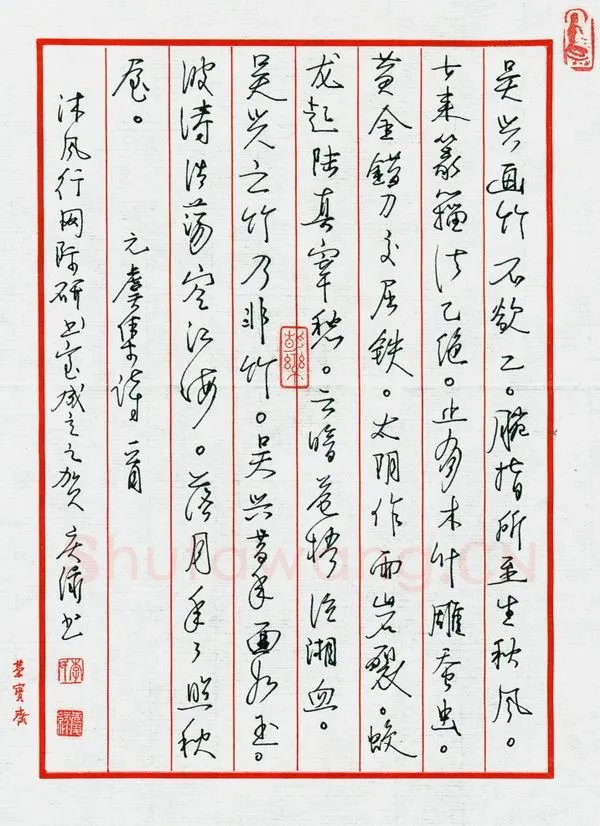 吴兴画竹不欲工。腕指所至生秋风。
古来篆籀法已绝。止有木叶雕蚕虫。
黄金错刀交屈铁。太阴作雨岩裂。蛟
龙起陆真宰愁。云暗苍梧泣湘血。
吴兴之竹乃非竹。吴兴昔年面如玉。
波涛浩荡空江海。落月年々照秋
屋。
元虞集诗一首
沐风行网际研书室成立之贺 书
荣宝斋
Shufawang.CN